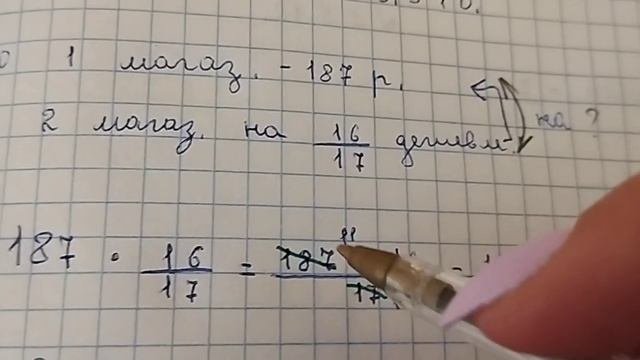 1 магаз. - 187 р.
2 магаз. на 16/17 дешевле на ?
187 · 16/17 = 187 11 / 17